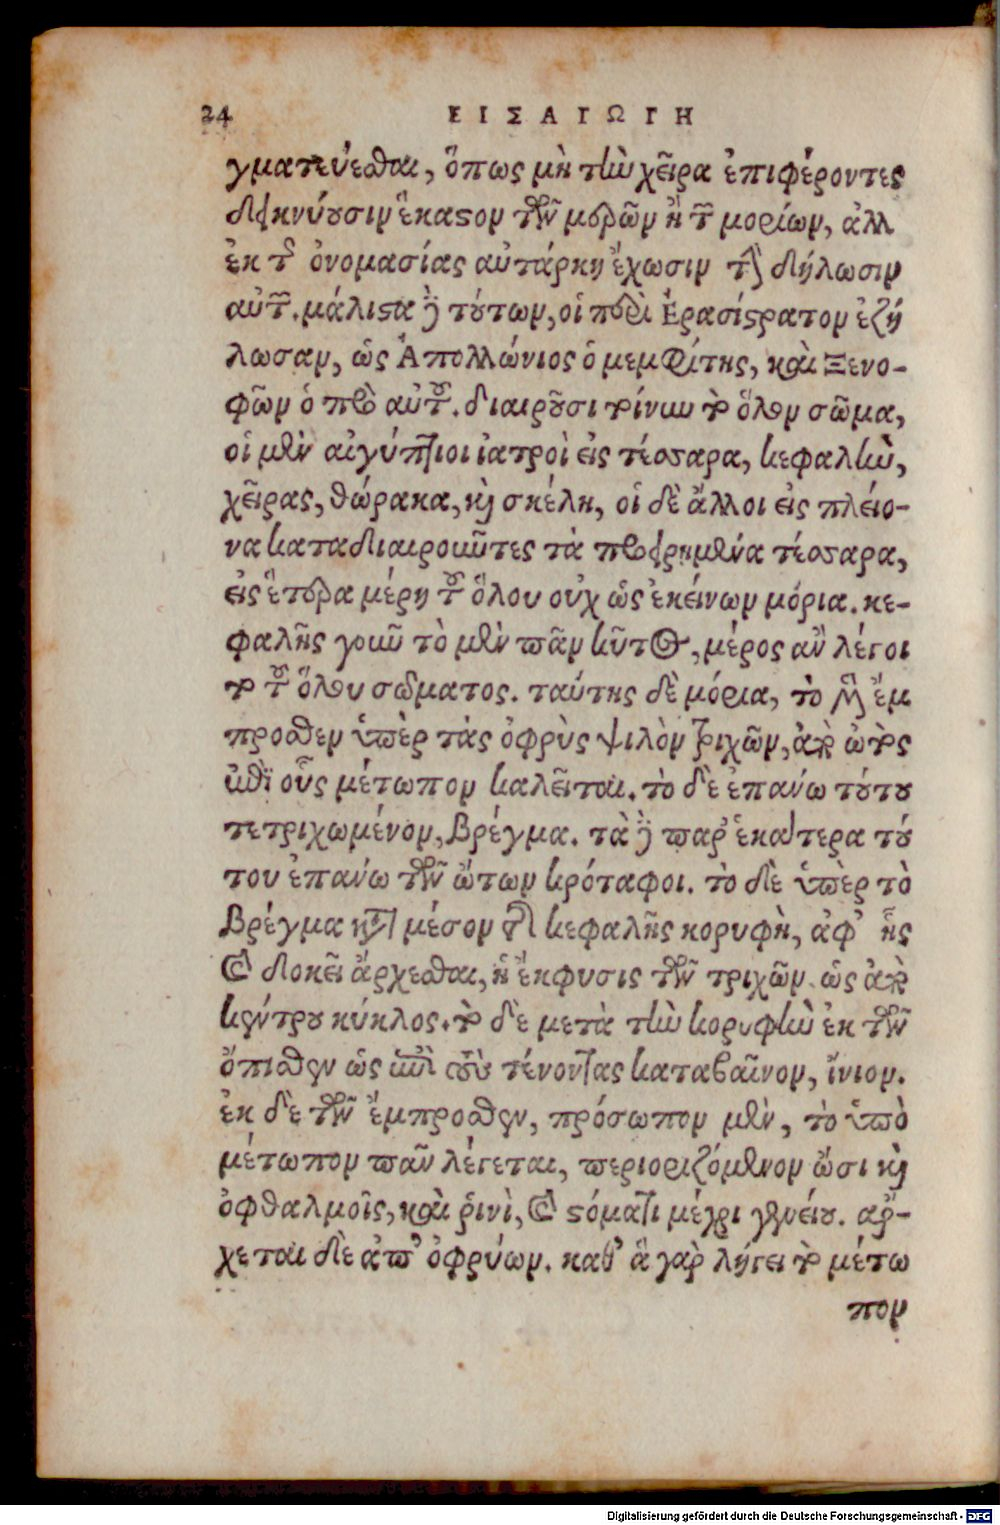 24 ΕΙΣΑΓΩΓΗ
γματεύεσθαι, ὅπως μὴ τὴν χεῖρα ἐπιφέροντες
δεικνύουσιν ἕκαστον τῶν μερῶν ἢ τῶν μορίων, ἀλλ
ἐκ τῆς ὀνομασίας αὐτάρκη ἔχωσιν τὴν δήλωσιν
αὐτῶν. μάλιστα δὲ τούτων, οἱ περὶ Ἐρασίστρατον ἐζή
λωσαν, ὡς Ἀπολλώνιος ὁ μεμφίτης, καὶ Ξενο-
φῶν ὁ πρὸ αὐτοῦ. διαιροῦσι τοίνυν τὸ ὅλον σῶμα,
οἱ μὲν αἰγύπτιοι ἰατροὶ εἰς τέσσαρα, κεφαλὴν,
χεῖρας, θώρακα, καὶ σκέλη, οἱ δὲ ἄλλοι εἰς πλείο-
να καταδιαιροῦντες τὰ προειρημένα τέσσαρα,
εἰς ἕτερα μέρη τοῦ ὅλου οὐχ ὡς ἐκείνων μόρια. κε-
φαλῆς γοῦν τὸ μὲν πᾶν κῦτος, μέρος ἂν λέγοι
το τοῦ ὅλου σώματος. ταύτης δὲ μόρια, τὸ μὲν ἔμ
προσθεν ὑπὲρ τὰς ὀφρὺς ψιλὸν τριχῶν, ἀπὸ ὠτὸς
ἐπὶ οὖς μέτωπον καλεῖται. τὸ δὲ ἐπανω τούτου
τετριχωμένον, βρέγμα. τὰ δὲ παρ' ἑκάτερα τού
του ἐπανω τῶν ὤτων κρόταφοι. τὸ δὲ ὑπὲρ τὸ
βρέγμα κατὰ μέσον τῆς κεφαλῆς κορυφὴ, ἀφ' ἧς
καὶ δοκεῖ ἄρχεσθαι, ἡ ἔκφυσις τῶν τριχῶν. ὡς ἀπὸ
κέντρου κύκλος. τὸ δὲ μετὰ τὴν κορυφὴν ἐκ τῶν
ὄπισθεν ὡς ἐπὶ τοὺς τένοντας καταβαῖνον, ἴνιον.
ἐκ δὲ τῶν ἔμπροσθεν, πρόσωπον μὲν, τὸ ὑπὸ
μέτωπον πᾶν λέγεται, περιοριζόμενον ὦσι καὶ
ὀφθαλμοῖς, καὶ ῥινὶ, καὶ στόματι μέχρι γενείου. ἄρ-
χεται δὲ ἀπ' ὀφρύων. καθ' ἃ γὰρ λήγει τὸ μέτω
πον
Digitalisierung gefördert durch die Deutsche Forschungsgemeinschaft - DFG